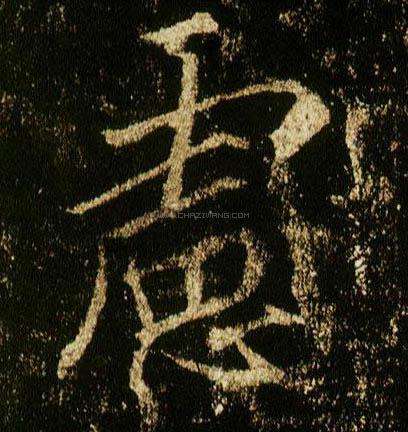 慮
WWW.CHAZIWANG.COM